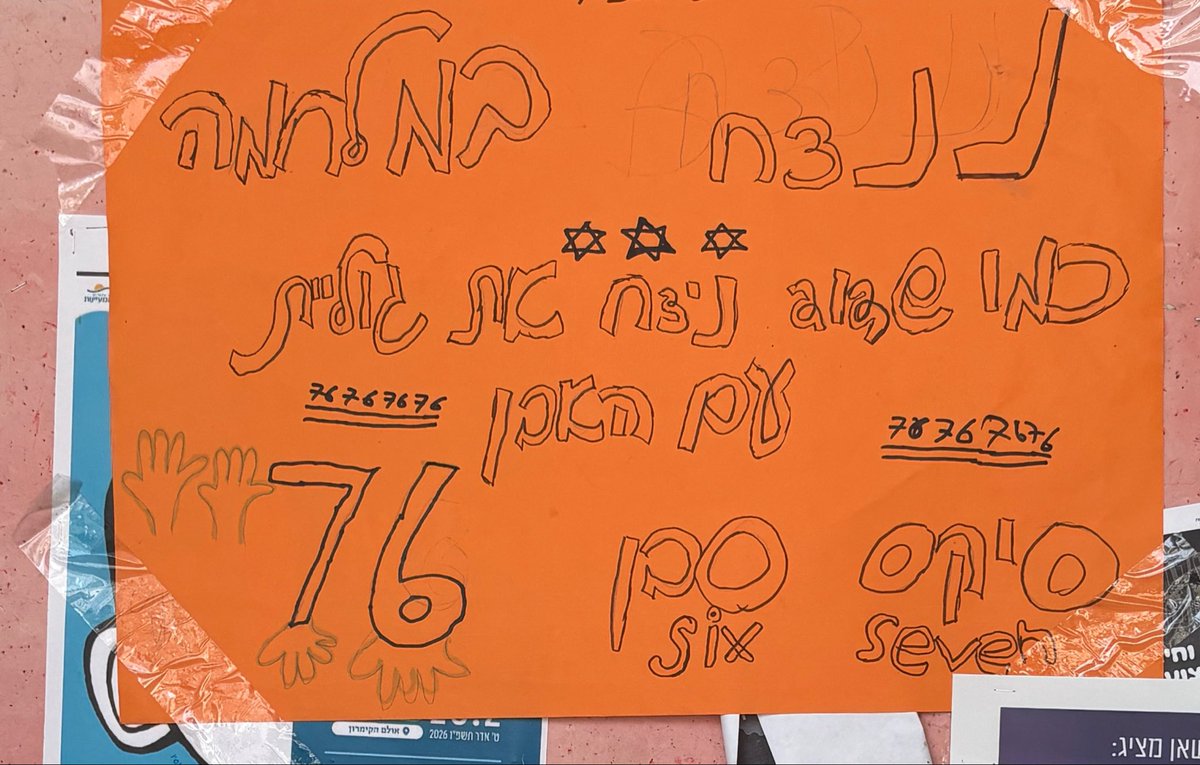 ננצח במלחמה
כמו שדוד ניצח את גוליית
עם האבן
76767676
76767676
סיקס סבן
six seven
76
אולם הקימרון
ט' אדר תשפ"ו 2026
ואן מציג: